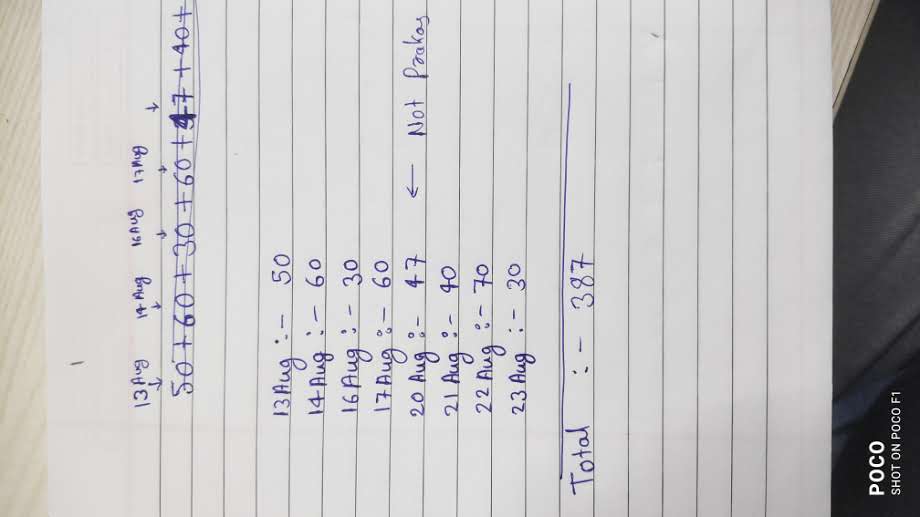 13 Aug 14 Aug 16 Aug 17 Aug
↓ ↓ ↓ ↓ ↓
50 + 60 + 30 + 60 + 47 + 40 +
13 Aug :- 50
14 Aug :- 60
16 Aug :- 30
17 Aug :- 60
20 Aug :- 47 ← Not Prakas
21 Aug :- 40
22 Aug :- 70
23 Aug :- 30
Total :- 387
POCO
SHOT ON POCO F1